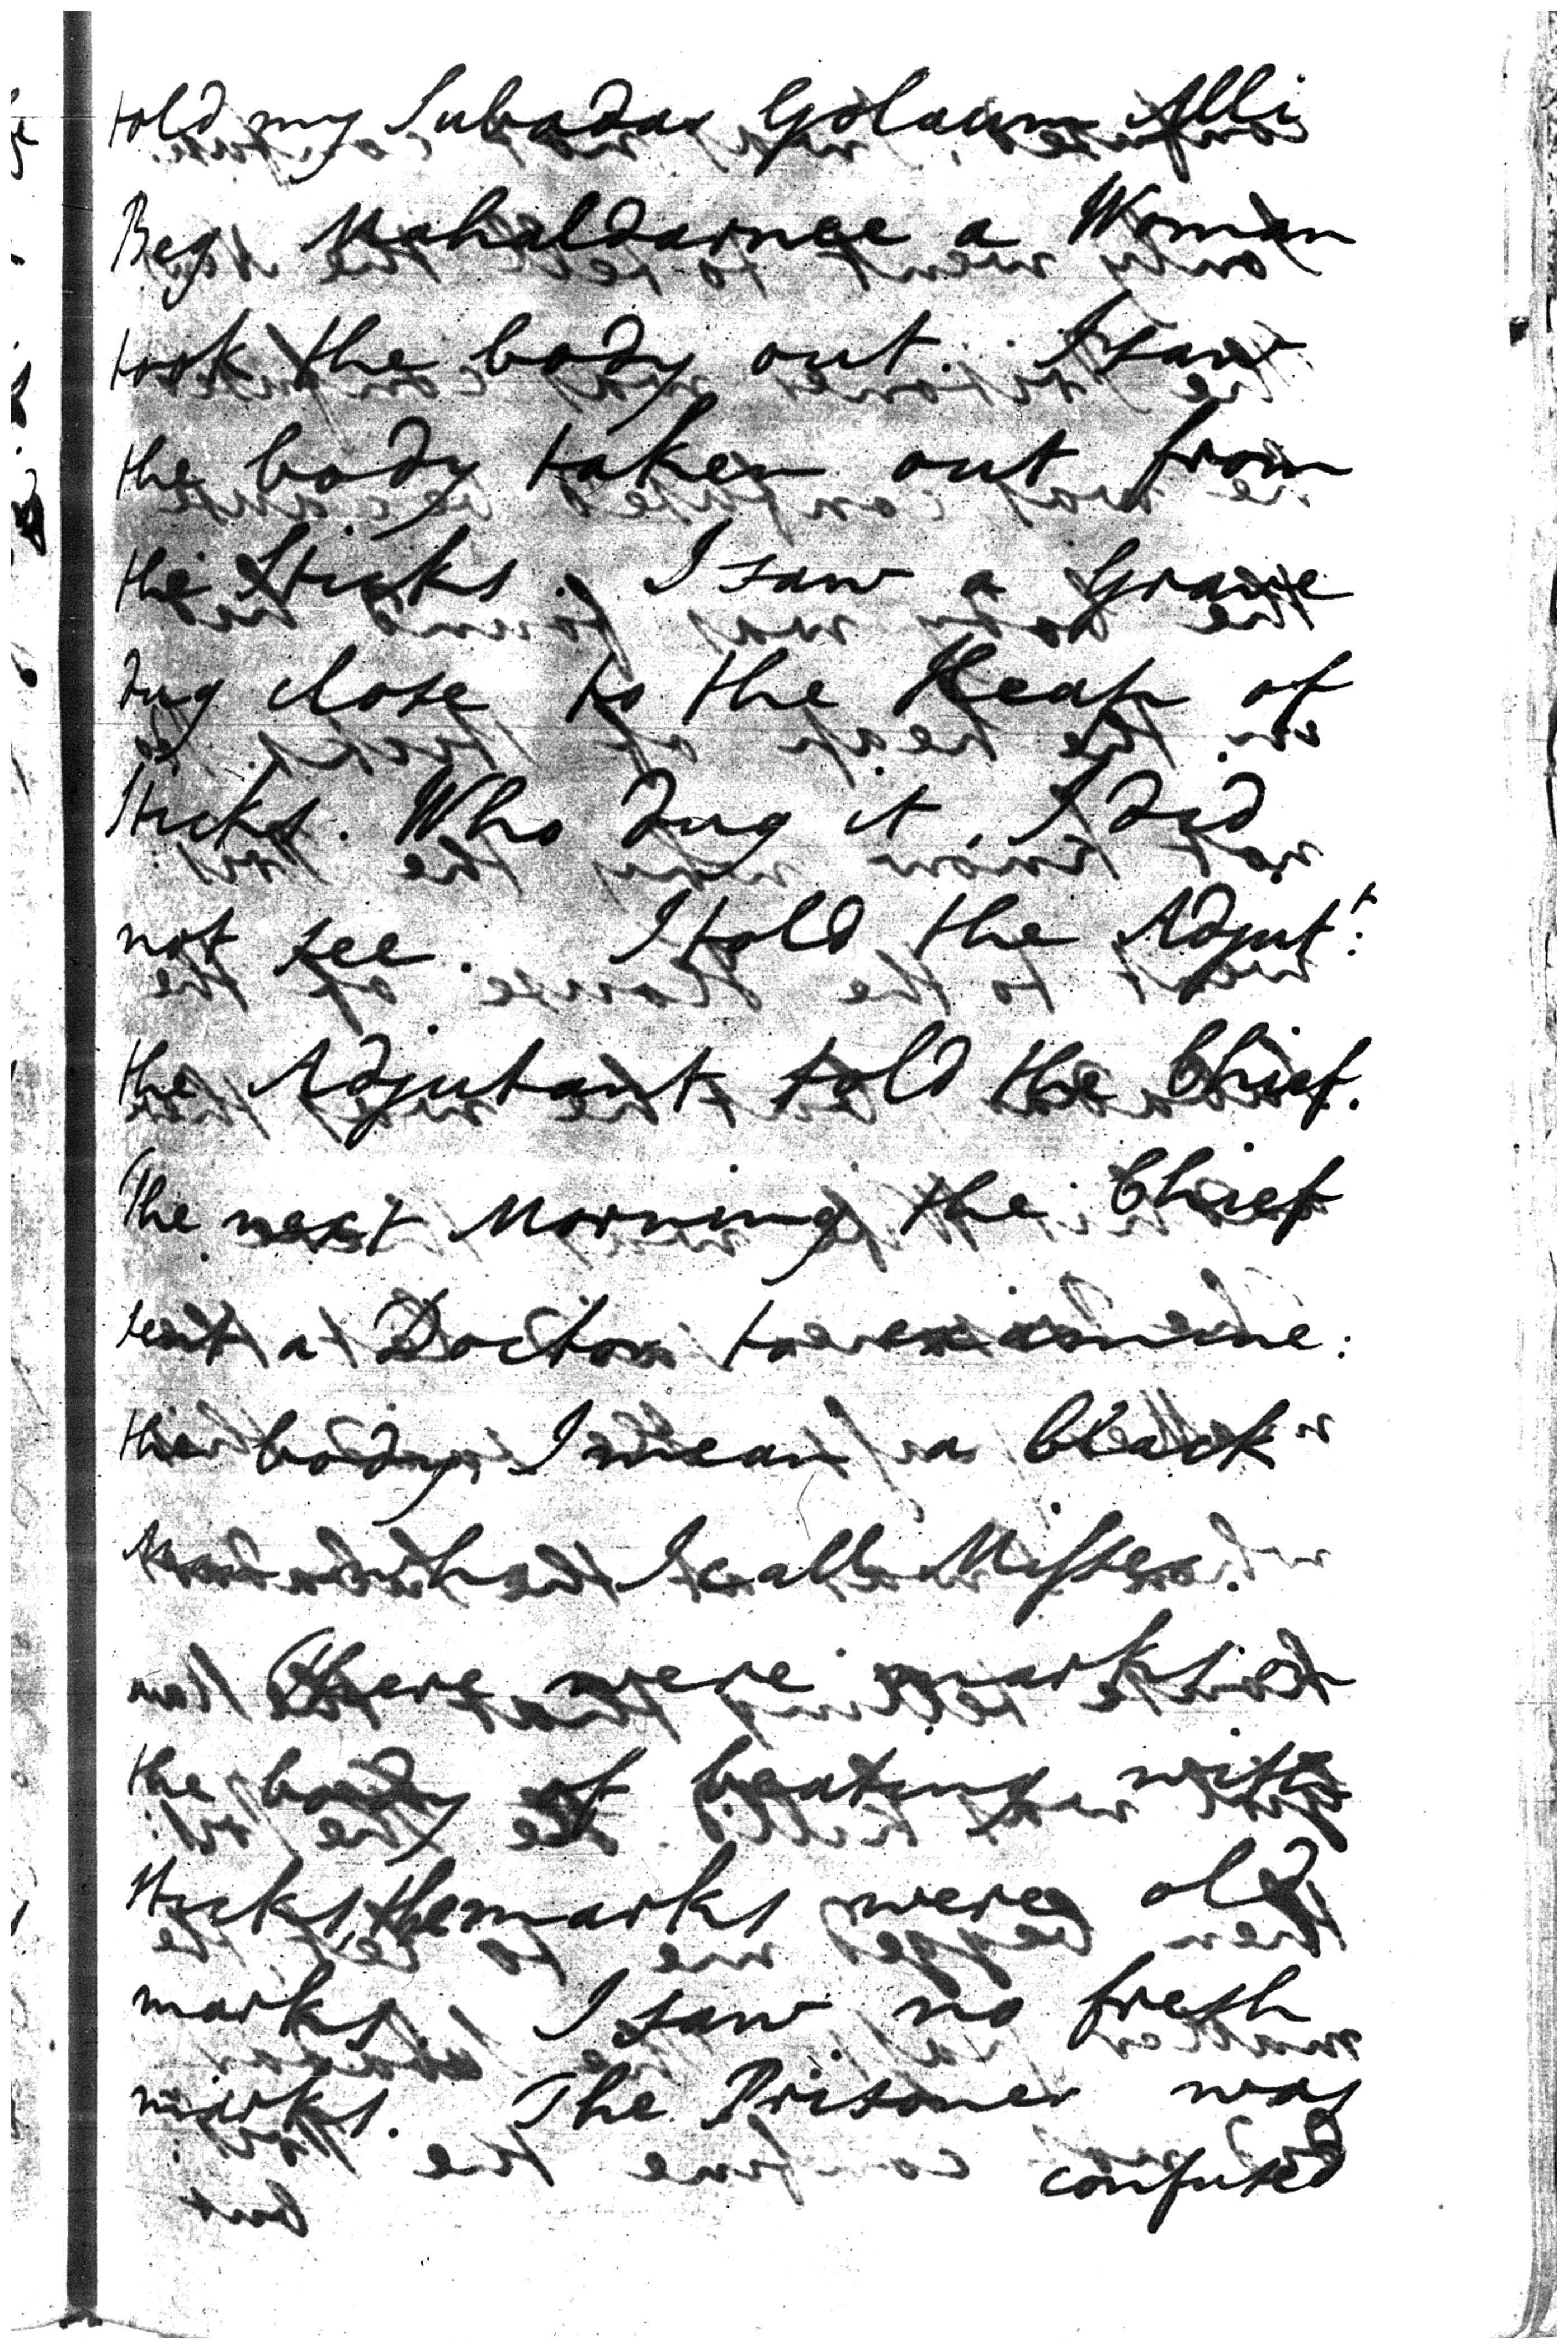 told my Subadar Golaum Alli
Beg. Mahaldarnee a Woman
took the body out. I saw
the body taken out from
the Sticks. I saw a Grave
dug close to the Heap of
Sticks. Who dug it, I did
not see. I told the Adjut.t
the Adjutant told the Chief.
The next Morning the Chief
sent a Doctor to examine
the body, I mean a black
I call Misser.
There were marks on
the body of beating with
Sticks the marks were old
marks. I saw no fresh
marks. The Prisoner was
confused